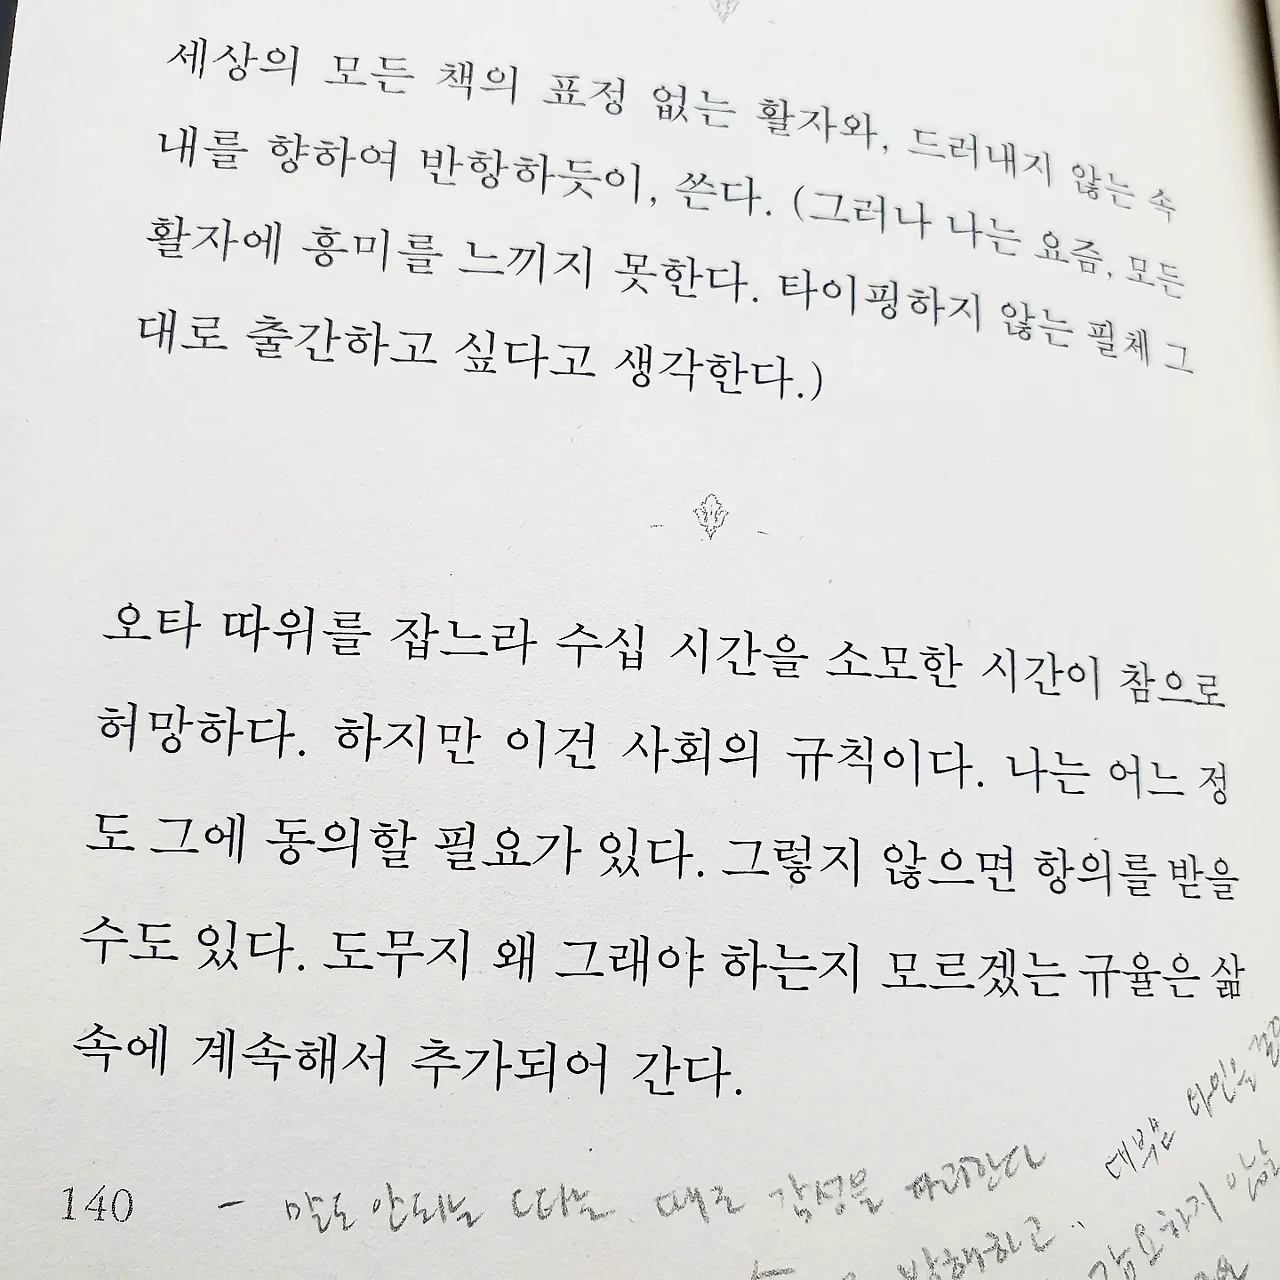 세상의 모든 책의 표정 없는 활자와, 드러내지 않는 속
내를 향하여 반항하듯이, 쓴다. (그러나 나는 요즘, 모든
활자에 흥미를 느끼지 못한다. 타이핑하지 않는 필체 그
대로 출간하고 싶다고 생각한다.)
오타 따위를 잡느라 수십 시간을 소모한 시간이 참으로
허망하다. 하지만 이건 사회의 규칙이다. 나는 어느 정
도 그에 동의할 필요가 있다. 그렇지 않으면 항의를 받을
수도 있다. 도무지 왜 그래야 하는지 모르겠는 규율은 삶
속에 계속해서 추가되어 간다.
140
- 말도 안되는 오타는 때로 감성을 파괴한다
대부분 타인을
방해하고..
강요하지 않